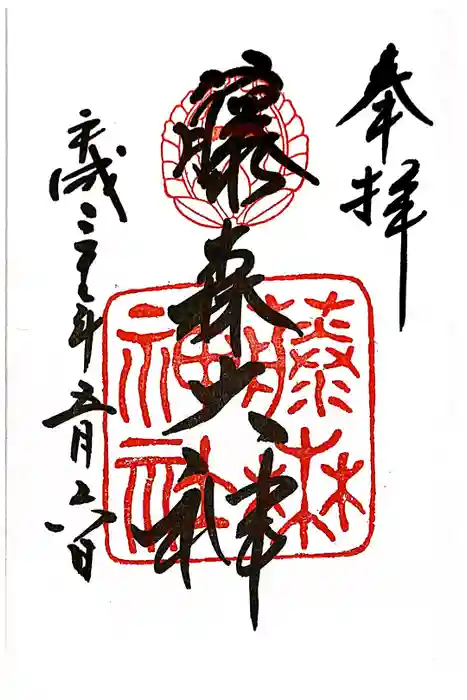 奉拝
藤森大神
藤森神社
平成三十年五月六日